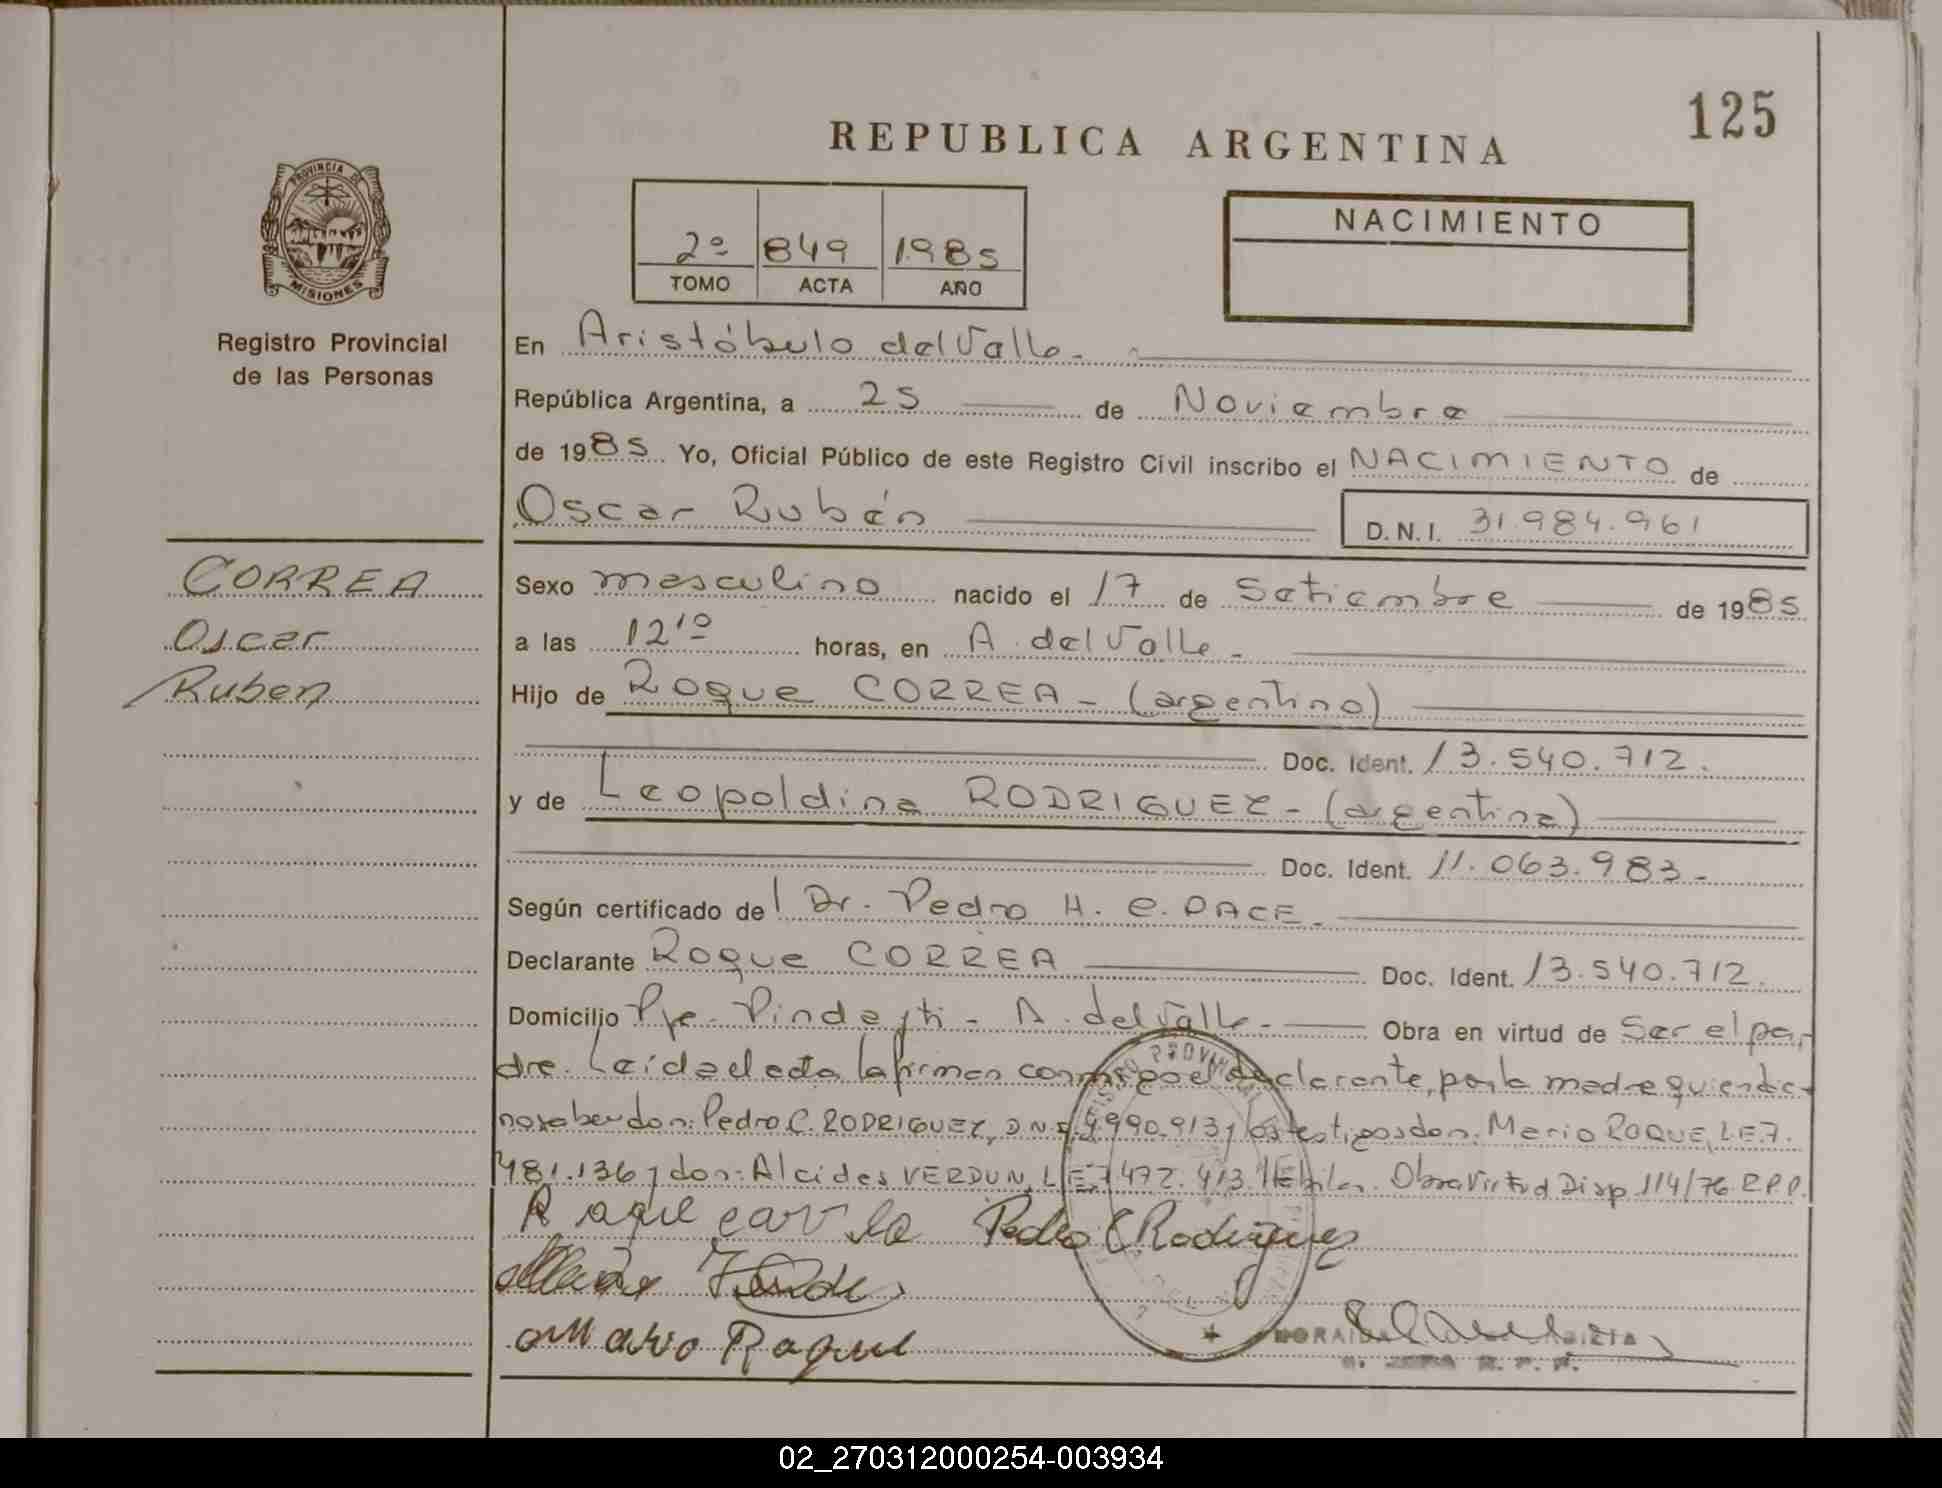 125
REPUBLICA ARGENTINA
PROVINCIA DE
MISIONES
Registro Provincial
de las Personas
2º 849 1985
TOMO ACTA AÑO
NACIMIENTO
En Aristóbulo del Valle.-
República Argentina, a 25 de Noviembre
de 1985 Yo, Oficial Público de este Registro Civil inscribo el NACIMIENTO de
Oscar Rubén D.N.I. 31.984.961
CORREA
Oscar
Ruben
Sexo masculino nacido el 17 de Setiembre de 1985
a las 12¹º horas, en A. del Valle.-
Hijo de Roque CORREA - (argentino)
Doc. Ident. 13.540.712.
y de Leopoldina RODRIGUEZ - (argentina)
Doc. Ident. 11.063.983.-
Según certificado del Dr. Pedro H. C. PACE.-
Declarante Roque CORREA Doc. Ident. 13.540.712.
Domicilio Pje. Pindayti - A. del Valle.- Obra en virtud de Ser el pa-
dre. Leída el acta la firman conmigo el declarante, por la madre quien dice
no saber don: Pedro C. RODRIGUEZ, D.N.I. 990.913 y los testigos don: Mario ROQUE, L.E. 7.
481.136 y don: Alcides VERDUN, L.E. 7.472.413. Hábiles. Obra Virtud Disp 114/76 R.P.P.
Pedro C Rodriguez
Mario Raque
02_270312000254-003934